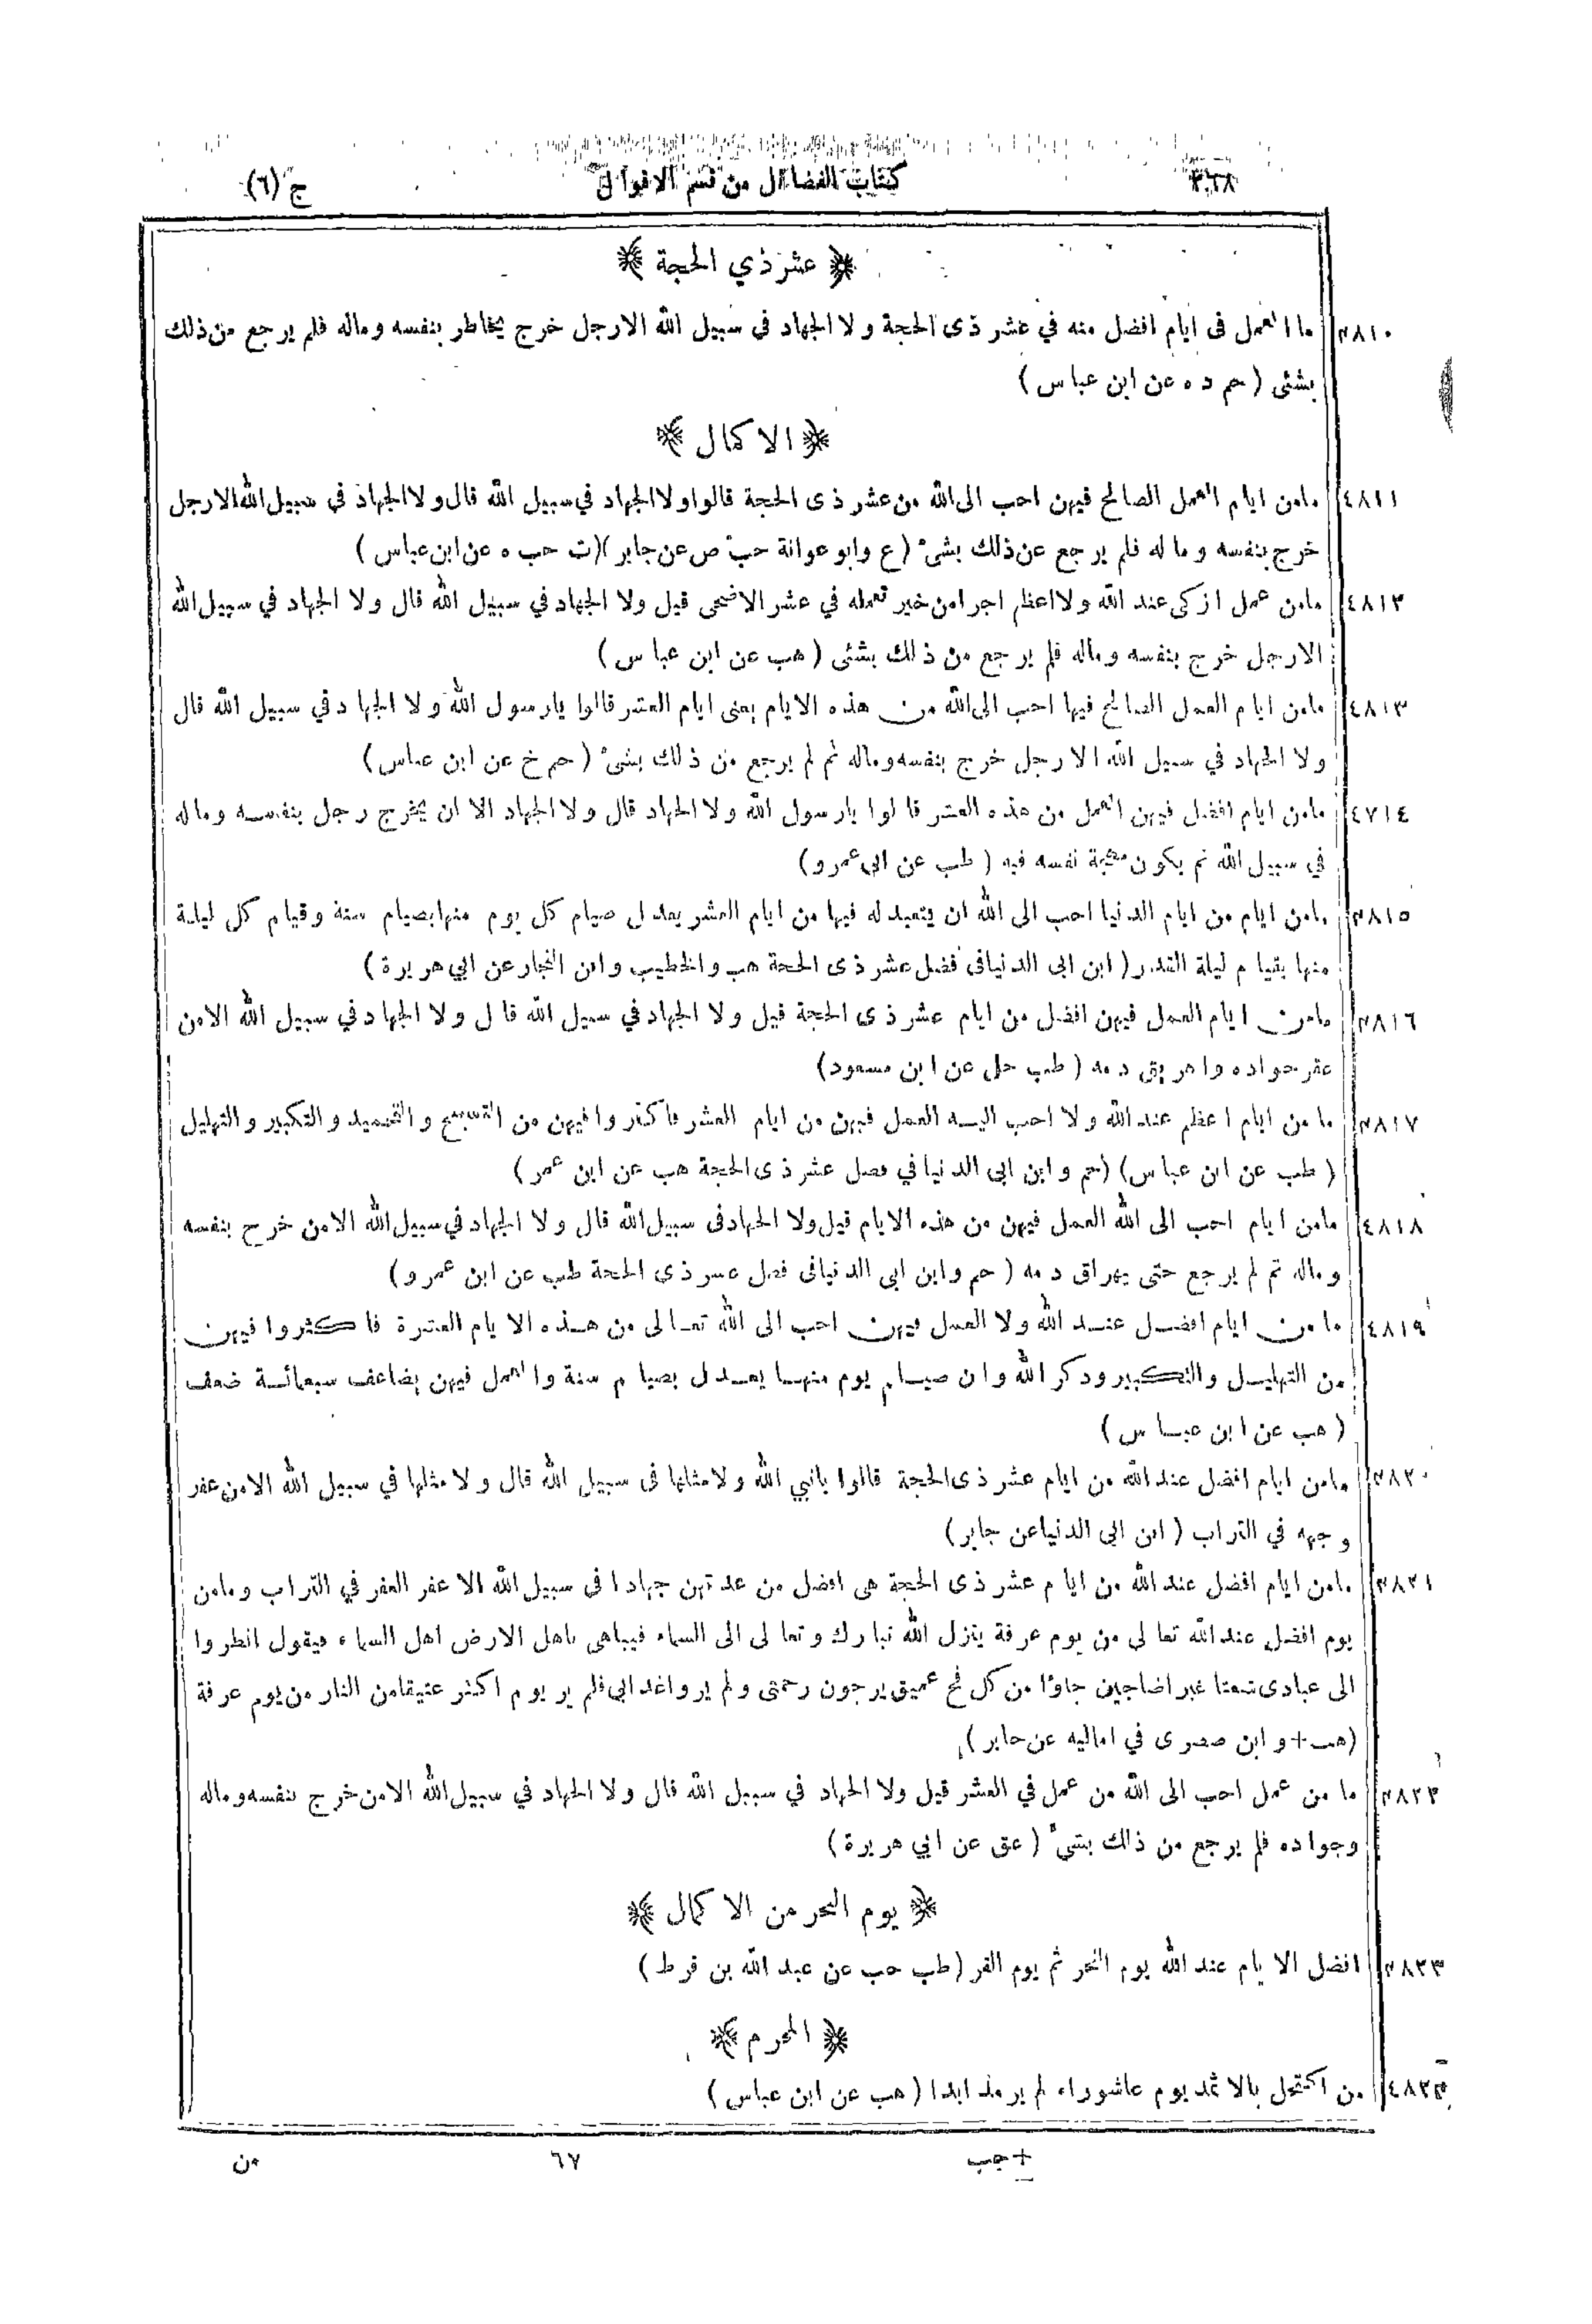 ٣٦٨ كتاب الفضائل من قسم الاقوال ج (٦)
﴿ عشر ذي الحجة ﴾
٤٨١٠ ما العمل في ايام افضل منه في عشر ذى الحجة ولا الجهاد في سبيل الله الا رجل خرج يخاطر بنفسه وماله فلم يرجع من ذلك
بشئى (حم د ه عن ابن عباس)
﴿ الاكمال ﴾
٤٨١١ مامن ايام العمل الصالح فيهن احب الى الله من عشر ذى الحجة قالوا ولا الجهاد في سبيل الله قال ولا الجهاد في سبيل الله الا رجل
خرج بنفسه وما له فلم يرجع عن ذلك بشئ (ع وابو عوانة حب ص عن جابر)(ت حب ه عن ابن عباس)
٤٨١٢ مامن عمل ازكى عند الله ولا اعظم اجرا من خير تعمله في عشر الاضحى قيل ولا الجهاد في سبيل الله قال ولا الجهاد في سبيل الله
الا رجل خرج بنفسه وماله فلم يرجع من ذلك بشئى (هب عن ابن عباس)
٤٨١٣ مامن ايام العمل الصالح فيها احب الى الله من هذه الايام يعنى ايام العشر قالوا يارسول الله ولا الجهاد في سبيل الله قال
ولا الجهاد في سبيل الله الا رجل خرج بنفسه وماله ثم لم يرجع من ذلك بشئ (حم خ عن ابن عباس)
٤٧١٤ مامن ايام افضل فيهن العمل من هذه العشر قالوا يارسول الله ولا الجهاد قال ولا الجهاد الا ان يخرج رجل بنفسه وماله
في سبيل الله ثم يكون مهجة نفسه فيه (طب عن ابى عمرو)
٤٨١٥ مامن ايام من ايام الدنيا احب الى الله ان يتعبد له فيها من ايام العشر يعدل صيام كل يوم منها بصيام سنة وقيام كل ليلة
منها بقيام ليلة القدر (ابن ابى الدنيا فى فضل عشر ذى الحجة هب والخطيب وابن النجار عن ابي هريرة)
٤٨١٦ مامن ايام العمل فيهن افضل من ايام عشر ذى الحجة قيل ولا الجهاد في سبيل الله قال ولا الجهاد في سبيل الله الا من
عقر جواده واهريق دمه (طب حل عن ابن مسعود)
٤٨١٧ ما من ايام اعظم عند الله ولا احب اليه العمل فيهن من ايام العشر فاكثروا فيهن من التسبيح والتحميد والتكبير والتهليل
(طب عن ابن عباس) (حم وابن ابى الدنيا في فضل عشر ذى الحجة هب عن ابن عمر)
٤٨١٨ مامن ايام احب الى الله العمل فيهن من هذه الايام قيل ولا الجهاد فى سبيل الله قال ولا الجهاد في سبيل الله الا من خرج بنفسه
وماله ثم لم يرجع حتى يهراق دمه (حم وابن ابى الدنيا فى فضل عشر ذى الحجة طب عن ابن عمرو)
٤٨١٩ ما من ايام افضل عند الله ولا العمل فيهن احب الى الله تعالى من هذه الايام العشرة فاكثروا فيهن
من التهليل والتكبير وذكر الله وان صيام يوم منها يعدل بصيام سنة والعمل فيهن يضاعف سبعمائة ضعف
(هب عن ابن عباس)
٤٨٢٠ مامن ايام افضل عند الله من ايام عشر ذى الحجة قالوا يانبي الله ولا مثلها فى سبيل الله قال ولا مثلها في سبيل الله الا من عفر
وجهه في التراب (ابن ابى الدنيا عن جابر)
٤٨٢١ مامن ايام افضل عند الله من ايام عشر ذى الحجة هى افضل من عدتهن جهادا فى سبيل الله الا عفر العفر في التراب ومامن
يوم افضل عند الله تعالى من يوم عرفة ينزل الله تبارك وتعالى الى السماء فيباهى باهل الارض اهل السماء فيقول انظروا
الى عبادى شعثا غبرا ضاجين جاؤا من كل فج عميق يرجون رحمتى ولم يروا عذابى فلم ير يوم اكثر عتيقا من النار من يوم عرفة
(هب + وابن صصرى في اماليه عن جابر)
٤٨٢٢ ما من عمل احب الى الله من عمل في العشر قيل ولا الجهاد في سبيل الله قال ولا الجهاد في سبيل الله الا من خرج بنفسه وماله
وجواده فلم يرجع من ذالك بشئ (عق عن ابي هريرة)
﴿ يوم النحر من الاكمال ﴾
٤٨٢٣ افضل الايام عند الله يوم النحر ثم يوم القر (طب حب عن عبد الله بن قرط)
﴿ المحرم ﴾
٤٨٢٤ من اكتحل بالاثمد يوم عاشوراء لم يرمد ابدا (هب عن ابن عباس)
+ حب ٦٧ من